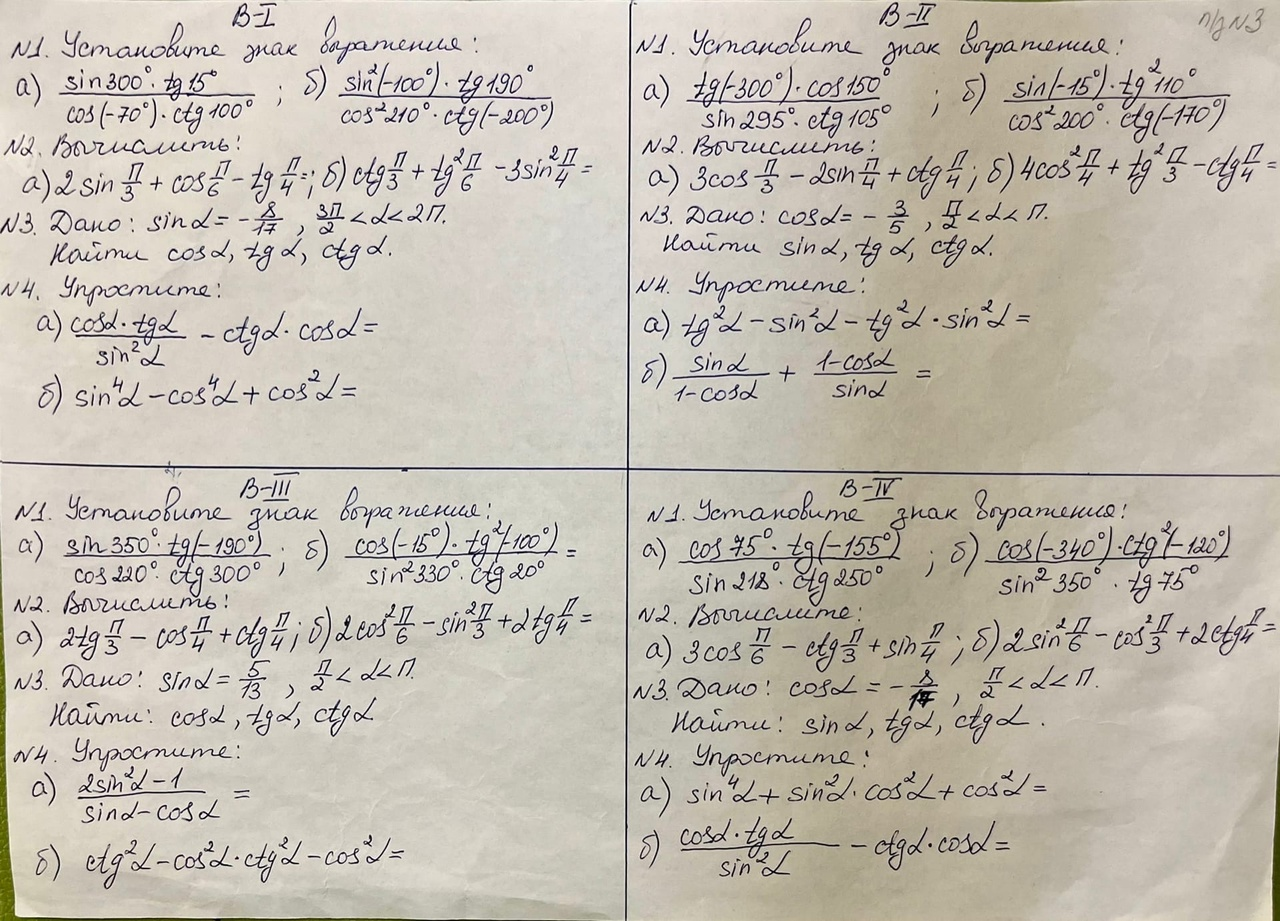 В-I
N1. Установите знак выражения:
а) (sin300°·tg15°)/(cos(-70°)·ctg100°) ; б) (sin²(-100°)·tg190°)/(cos²210°·ctg(-200°))
N2. Вычислить:
а) 2 sin π/3 + cos π/6 - tg π/4 =; б) ctg π/3 + tg² π/6 - 3sin² π/4 =
N3. Дано: sinα = - 8/17, 3π/2 < α < 2π.
Найти cosα, tgα, ctgα.
N4. Упростите:
а) (cosα·tgα)/(sin²α) - ctgα·cosα =
б) sin⁴α - cos⁴α + cos²α =
В-II
п/р N3
N1. Установите знак выражения:
а) (tg(-300°)·cos150°)/(sin295°·ctg105°) ; б) (sin(-15°)·tg²110°)/(cos²200°·ctg(-170°))
N2. Вычислить:
а) 3cos π/3 - 2sin π/4 + ctg π/4; б) 4cos² π/4 + tg² π/3 - ctg π/4 =
N3. Дано: cosα = - 3/5, π/2 < α < π.
Найти sinα, tgα, ctgα.
N4. Упростите:
а) tg²α - sin²α - tg²α·sin²α =
б) sinα/(1-cosα) + (1-cosα)/sinα =
В-III
N1. Установите знак выражения:
а) (sin350°·tg(-190°))/(cos220°·ctg300°) ; б) (cos(-15°)·tg²(-100°))/(sin²330°·ctg20°) =
N2. Вычислить:
а) 2tg π/3 - cos π/4 + ctg π/4; б) 2cos² π/6 - sin² π/3 + 2tg π/4 =
N3. Дано: sinα = 5/13, π/2 < α < π.
Найти: cosα, tgα, ctgα
N4. Упростите:
а) (2sin²α - 1)/(sinα - cosα) =
б) ctg²α - cos²α·ctg²α - cos²α =
В-IV
N1. Установите знак выражения:
а) (cos75°·tg(-155°))/(sin218°·ctg250°) ; б) (cos(-340°)·ctg²(-120°))/(sin²350°·tg75°)
N2. Вычислите:
а) 3cos π/6 - ctg π/3 + sin π/4; б) 2sin² π/6 - cos² π/3 + 2ctg π/4 =
N3. Дано: cosα = - 8/17, π/2 < α < π.
Найти: sinα, tgα, ctgα.
N4. Упростите:
а) sin⁴α + sin²α·cos²α + cos²α =
б) (cosα·tgα)/(sin²α) - ctgα·cosα =